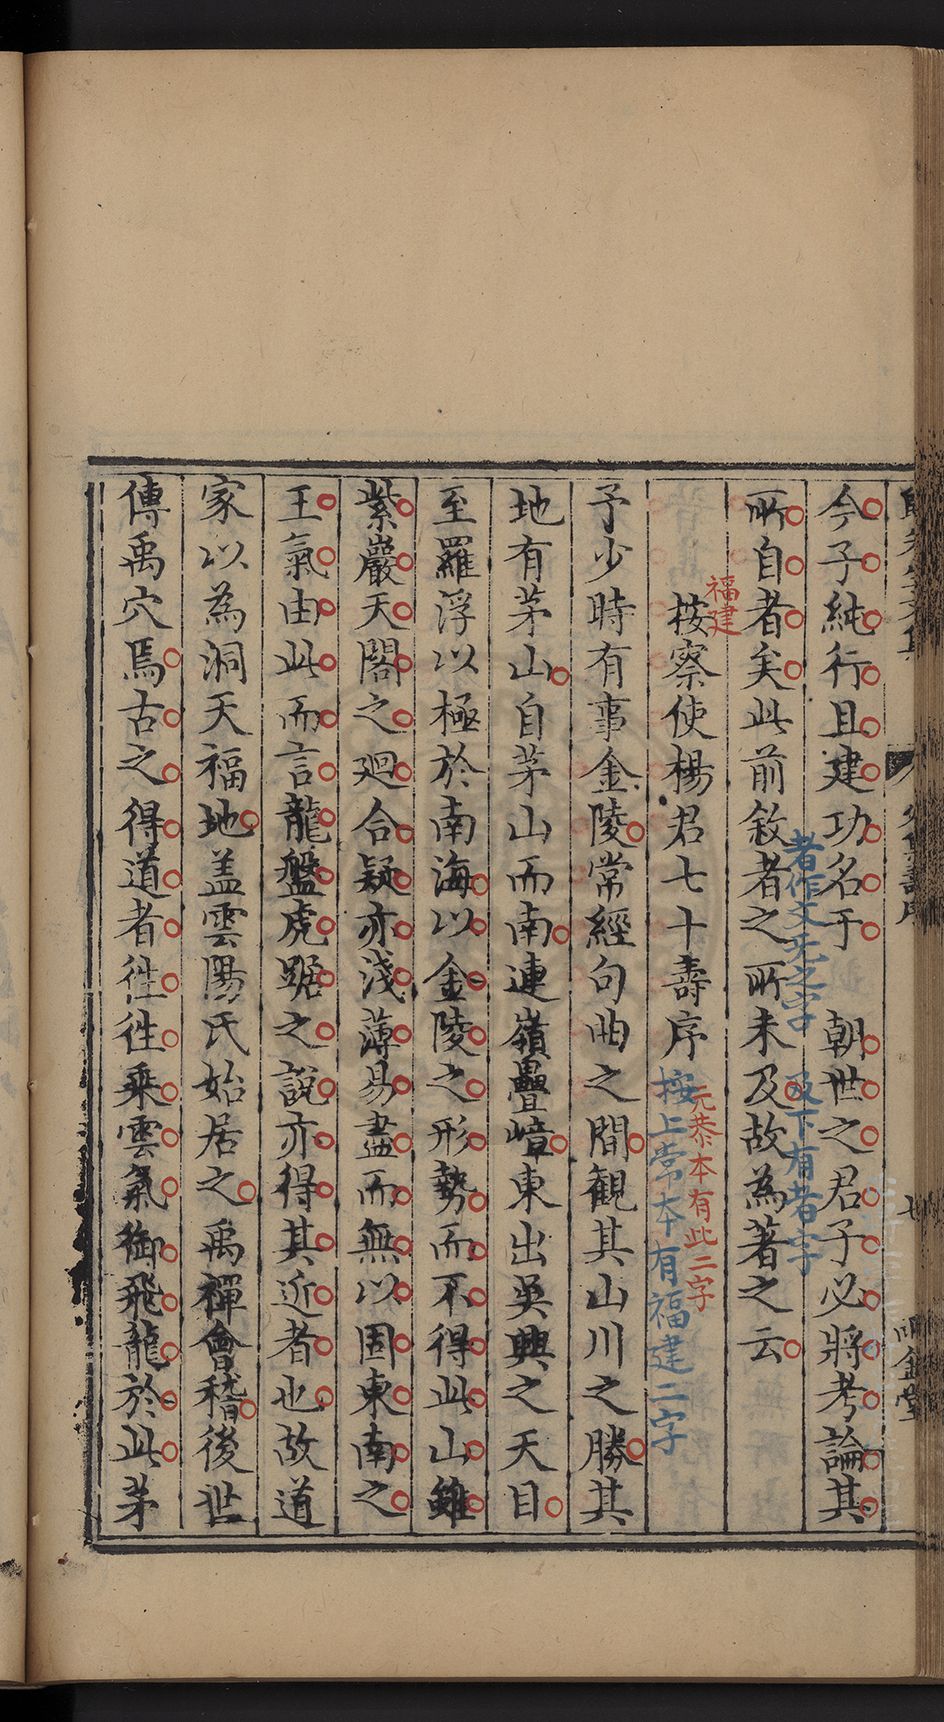 今子純行且建功名于　朝世之君子必將考論其
所自者矣此前敘者之所未及故為著之云
者作文无之字
及下有者字
福建
按察使楊君七十壽序
元恭本有此二字
按上常本有福建二字
予少時有事金陵常經句曲之間觀其山川之勝其
地有茅山自茅山而南連嶺疊嶂東出吳興之天目
至羅浮以極於南海以金陵之形勢而不得此山雖
紫巖天闊之廻合疑亦淺薄易盡而無以固東南之
王氣由此而言龍盤虎踞之說亦得其近者也故道
家以為洞天福地盖雲陽氏始居之禹禪會稽後世
傳禹穴焉古之得道者徃徃乘雲氣御飛龍於此茅